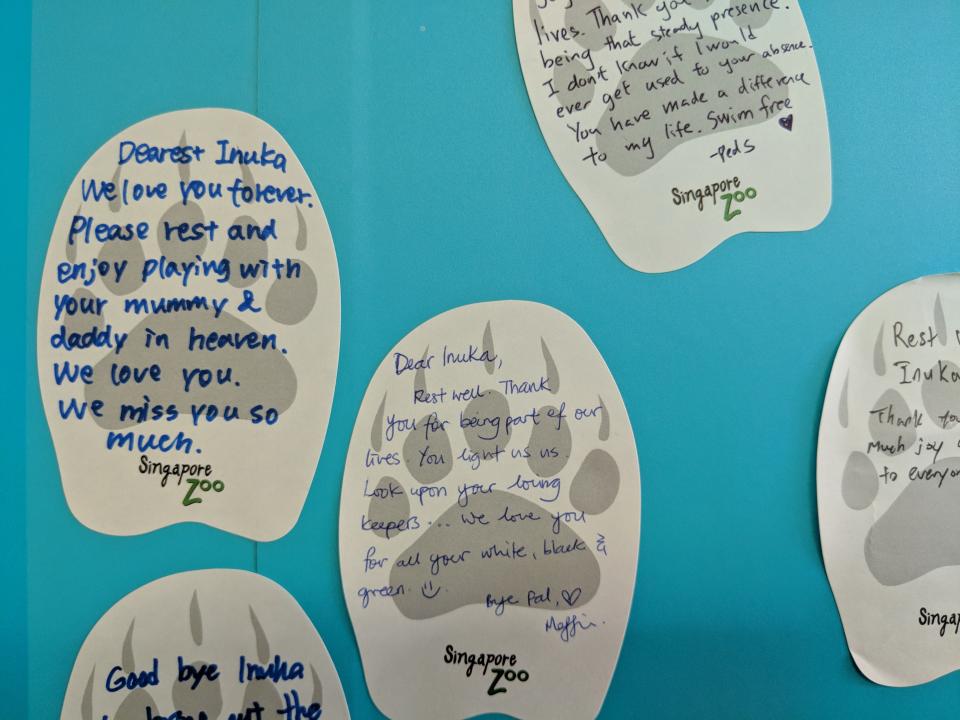 Dearest Inuka
We love you forever.
Please rest and
enjoy playing with
your mummy &
daddy in heaven.
We love you.
We miss you so
much.
Singapore
Zoo
lives. Thank you
being that steady presence.
I don't know if I would
ever get used to your absence.
You have made a difference
to my life. Swim free
-Peds
Singapore
Zoo
Dear Inuka,
Rest well. Thank
you for being part of our
lives. You light us us.
Look upon your loving
keepers... we love you
for all your white, black &
green.
Bye Pal,
Singapore
Zoo
Rest
Inuka
Thank you
much joy
to everyon
Singap
Good bye Inuka
out the